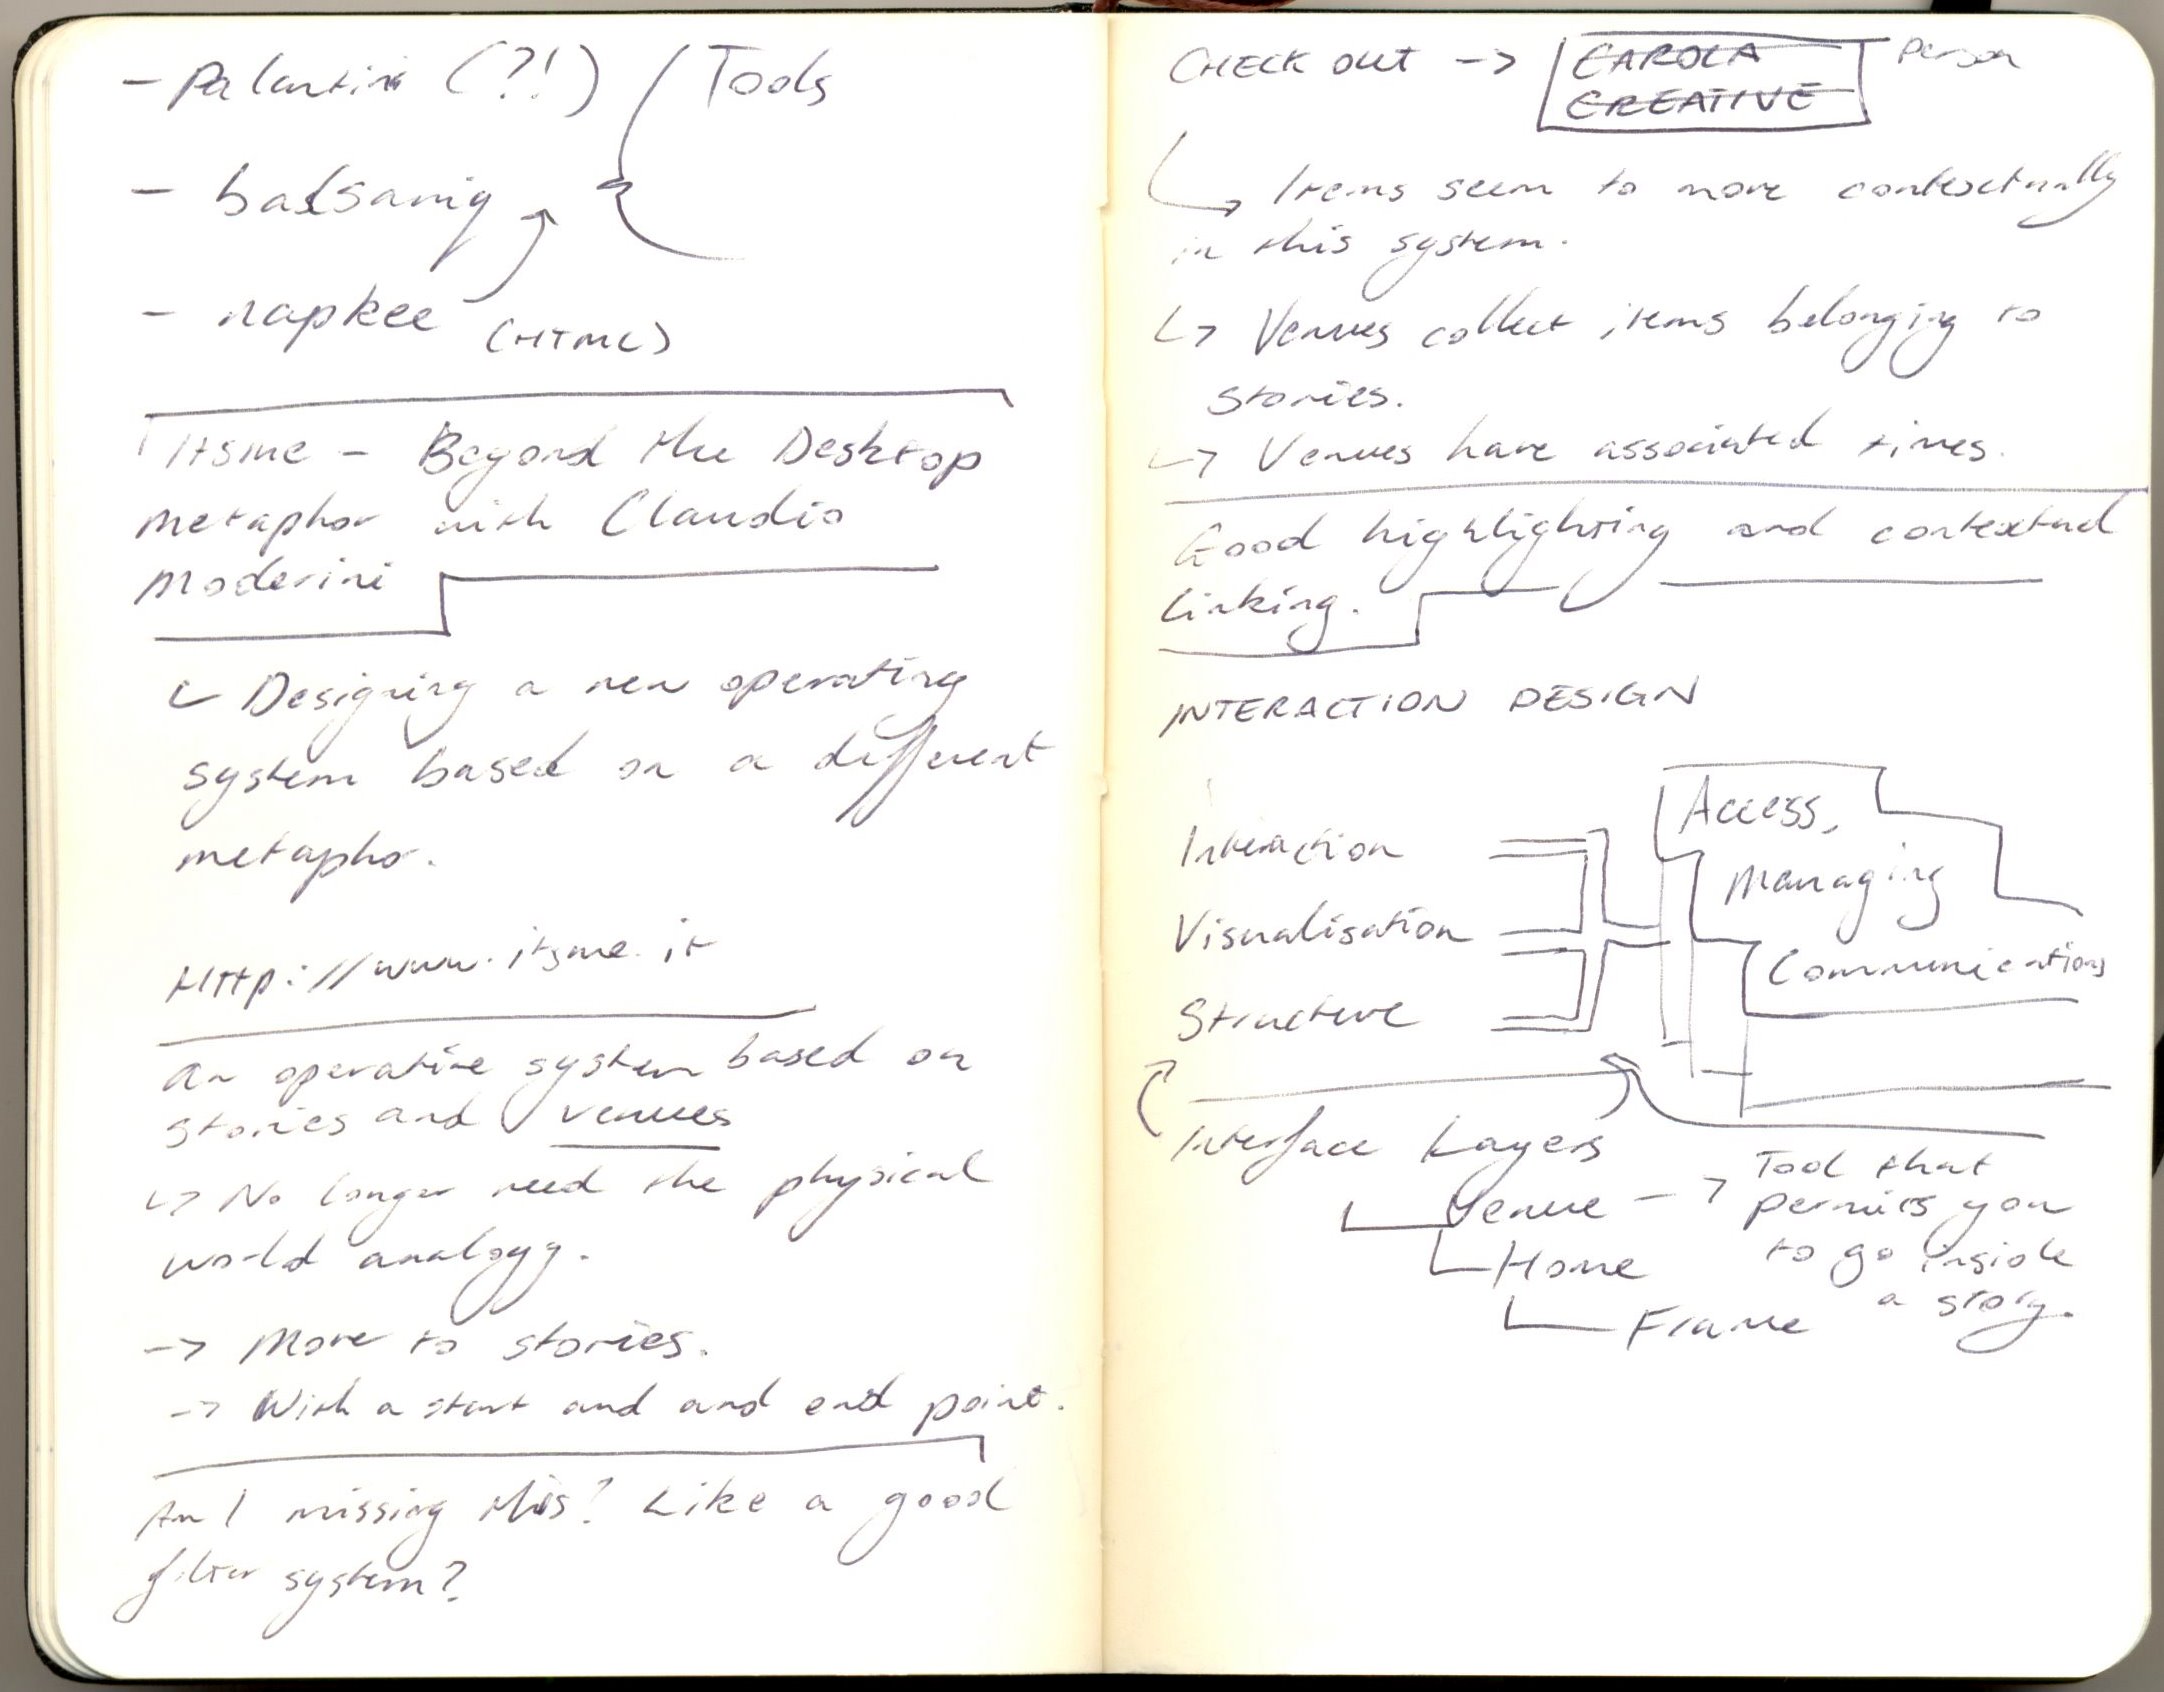 - Palantiri (?!)
Tools
- balsamiq
- napkee (HTML)
Itsme - Beyond the Desktop
metaphor with Claudio
Moderini
Designing a new operating
system based on a different
metaphor.
Http://www.itsme.it
An operative system based on
stories and venues
↳ No longer need the physical
world analogy.
-> Move to stories.
-> With a start and and end point.
Am I missing this? Like a good
filter system?
CHECK OUT -> CAROLA person
CREATIVE
Items seem to move contextually
in this system.
↳ Venues collect items belonging to
stories.
↳ Venues have associated times.
Good highlighting and contextual
linking.
INTERACTION DESIGN
Access,
Interaction
Managing
Visualisation
Communications
Structure
Interface Layers
Venue -> Tool that
permits you
to go inside
a story.
Home
Frame